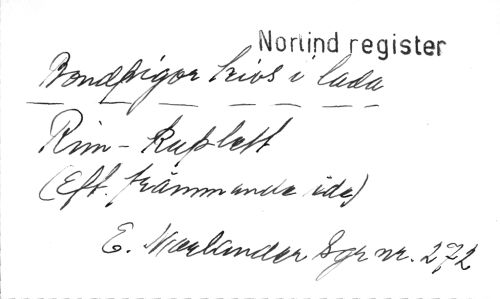 Norlind register
Bondpigor trivs i lada
Rim - kuplett
(Eft. främmande ide)
E. Norlander Sgr nr. 272